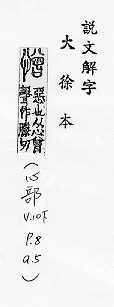 說文解字
大徐本
憎 惡也从心曾
聲作滕切
(心部
V.10下
P.8
a.5)